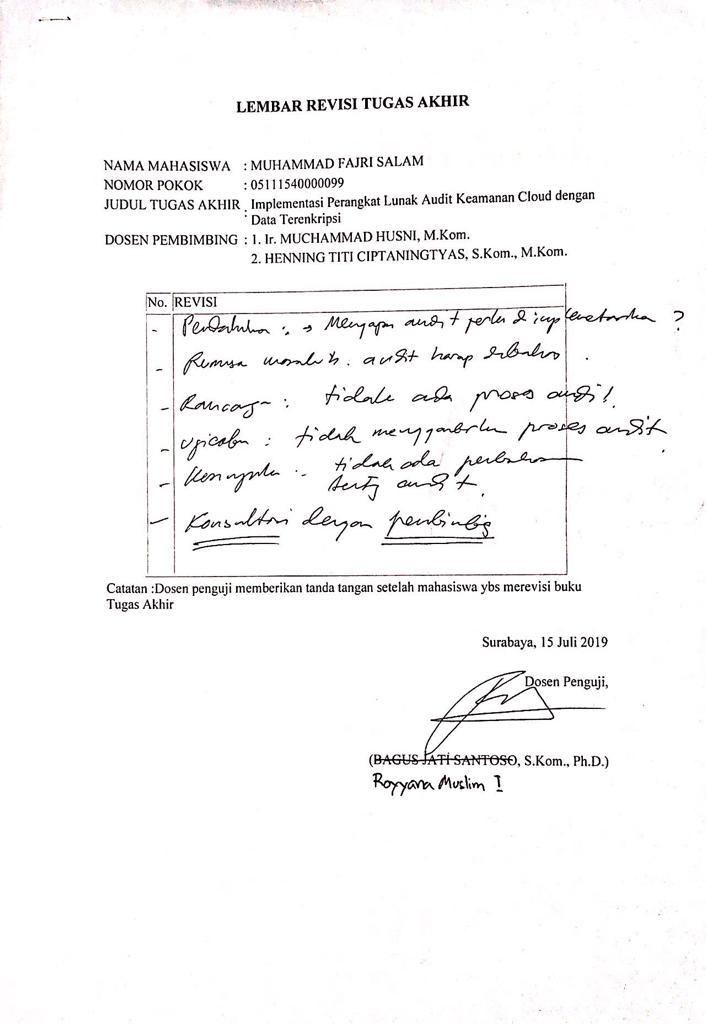 LEMBAR REVISI TUGAS AKHIR
NAMA MAHASISWA : MUHAMMAD FAJRI SALAM
NOMOR POKOK : 05111540000099
JUDUL TUGAS AKHIR : Implementasi Perangkat Lunak Audit Keamanan Cloud dengan
Data Terenkripsi
DOSEN PEMBIMBING : 1. Ir. MUCHAMMAD HUSNI, M.Kom.
2. HENNING TITI CIPTANINGTYAS, S.Kom., M.Kom.
No. REVISI
- Pendahuluan : → Mengapa audit perlu diimplementasikan ?
- Rumusan masalah audit harap
- Rancangan : tidak ada proses audit!
- Ujicoba : tidak menggambarkan proses audit
- Kesimpulan : tidak ada
audit.
- Konsultasi dengan pembimbing
Catatan :Dosen penguji memberikan tanda tangan setelah mahasiswa ybs merevisi buku
Tugas Akhir
Surabaya, 15 Juli 2019
Dosen Penguji,
(BAGUS JATI SANTOSO, S.Kom., Ph.D.)
Royyana Muslim I